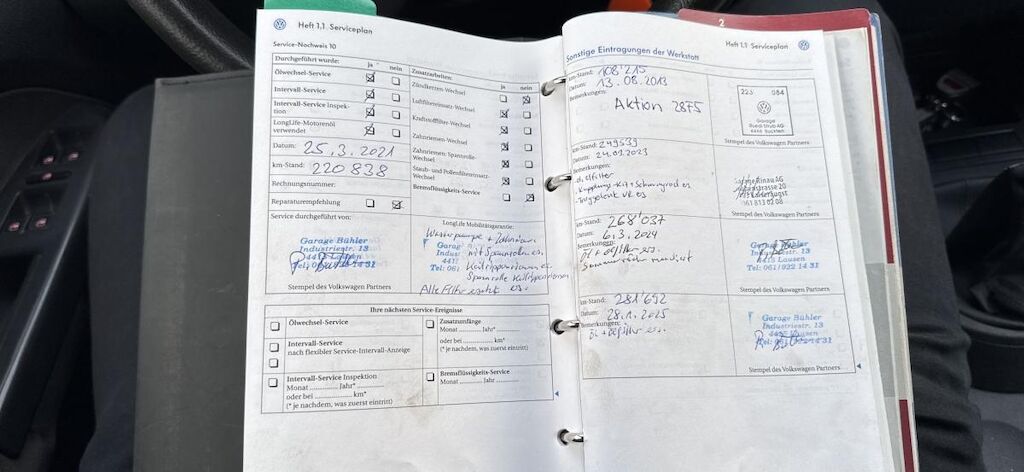 Heft 1.1 Serviceplan
Service-Nachweis 10
Durchgeführt wurde: ja nein
Ölwechsel-Service
Intervall-Service
Intervall-Service Inspek-
tion
LongLife-Motorenöl
verwendet
Datum: 25.3.2021
km-Stand: 220838
Rechnungsnummer:
Reparaturempfehlung
Service durchgeführt von:
Garage Bühler
Industriestr. 13
4415 Lausen
Tel: 061/922 14 31
Stempel des Volkswagen Partners
Zusatzarbeiten: ja nein
Zündkerzen-Wechsel
Luftfiltereinsatz-Wechsel
Kraftstofffilter-Wechsel
Zahnriemen-Wechsel
Zahnriemen-Spannrolle-
Wechsel
Staub- und Pollenfiltereinsatz-
Wechsel
Bremsflüssigkeits-Service
LongLife Mobilitätsgarantie:
Wasserpumpe + Zahnriemen
mit Spannrollen es.
Keilrippenriemen es
Spannrolle Keilrippenriemen
Alle Filter ersetzt es.
Stempel des Volkswagen Partners
Ihre nächsten Service-Ereignisse
Ölwechsel-Service
Intervall-Service
nach flexibler Service-Intervall-Anzeige
Intervall-Service Inspektion
Monat ............ Jahr* ............
oder bei ............ km*
(* je nachdem, was zuerst eintritt)
Zusatzumfänge
Monat ............ Jahr* ............
oder bei ............ km*
(* je nachdem, was zuerst eintritt)
Bremsflüssigkeits-Service
Monat ............ Jahr ............
2
Heft 1.1 Serviceplan
Sonstige Eintragungen der Werkstatt
km-Stand: 108'215
Datum: 13.08.2013
Bemerkungen:
Aktion 2875
223 084
Garage
Ruedi Strub AG
Buckten
Stempel des Volkswagen Partners
km-Stand: 249539
Datum: 24.01.2023
Bemerkungen:
- Kupplungs-Kit + Schwungrad es
061 813 02 08
Stempel des Volkswagen Partners
km-Stand: 268'037
Datum: 6.3.2024
Bemerkungen:
Öl + Ölfilter es.
Garage Bühler
Industriestr. 13
4415 Lausen
Tel: 061/922 14 31
Stempel des Volkswagen Partners
km-Stand: 281'692
Datum: 28.1.2025
Bemerkungen:
Öl + Ölfilter es.
Garage Bühler
Industriestr. 13
4415 Lausen
Tel: 061/922 14 31
Stempel des Volkswagen Partners